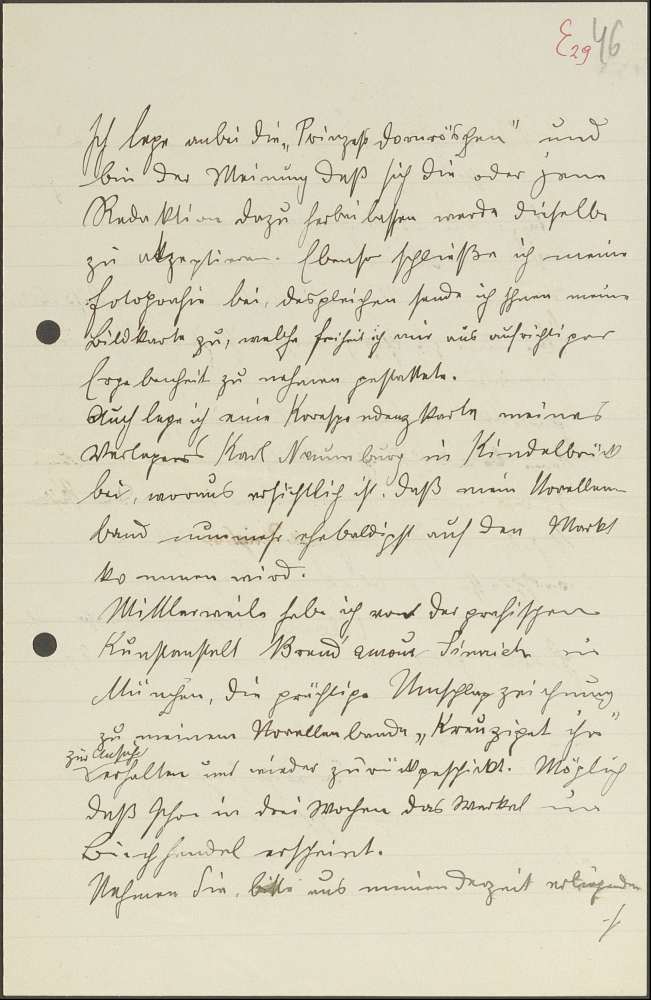 E29 46
Ich lege anbei die „Prinzeß Dornröschen" und
bin der Meinung daß sich die oder jene
Redaktion dazu herbeilassen werde dieselbe
zu akzeptieren. Ebenso schließe ich meine
Fotografie bei, desgleichen sende ich Ihnen meine
Bildkarte zu, welche Freiheit ich mir aus aufrichtiger
Ergebenheit zu nehmen gestattete.
Auch lege ich eine Korespondenzkarte meines
Verlegers Karl Naumburg in Kindelbrück
bei, woraus ersichtlich ist, daß mein Novellen
band nunmehr ehebaldigst auf den Markt
kommen wird.
Mittlerweile habe ich von der grafischen
Kunstanstalt Brend'amour Simrich in
München, die prächtige Umschlagzeichnung
zu meinem Novellenbande „Kreuziget ihn"
zur Ansicht
erhalten und wieder zurückgeschickt. Möglich
daß schon in drei Wochen das Werkel im
Buchhandel erscheint.
Nehmen Sie, bitte aus meinen derzeit